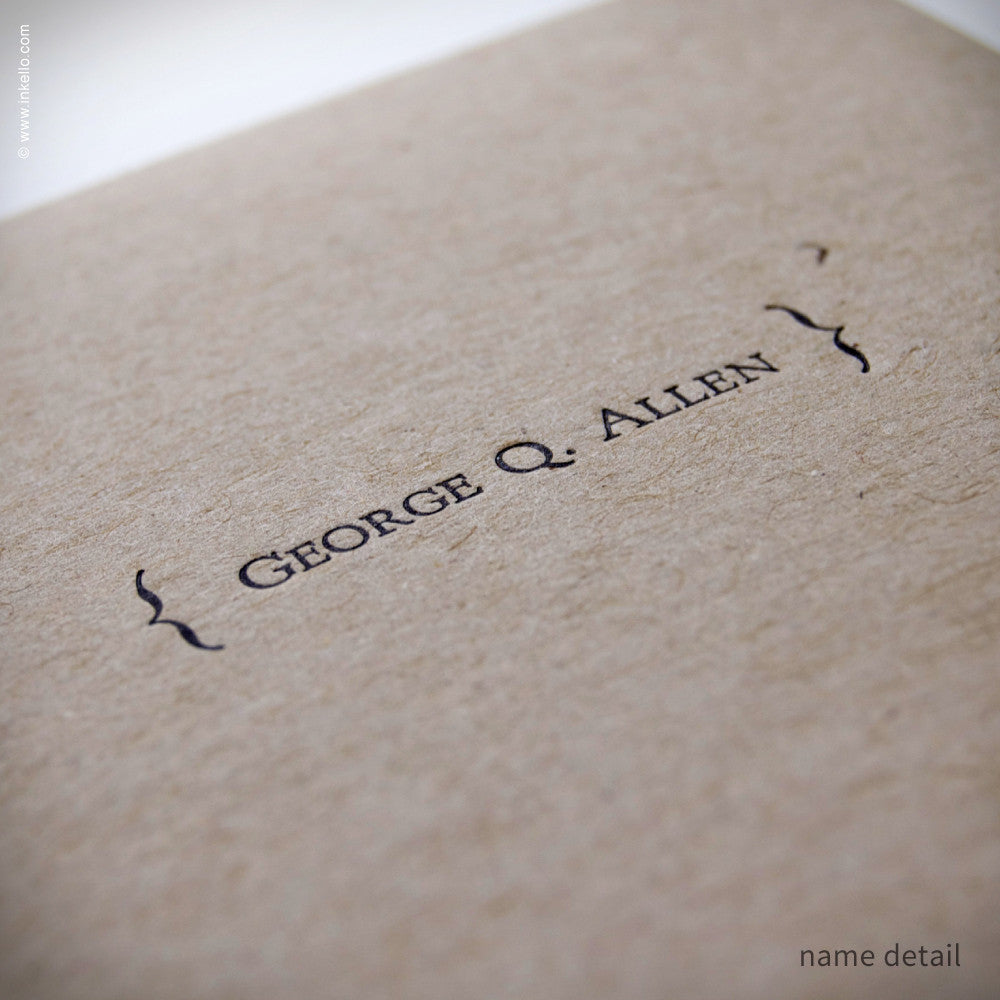 © www.inkello.com
{ GEORGE Q. ALLEN }
name detail